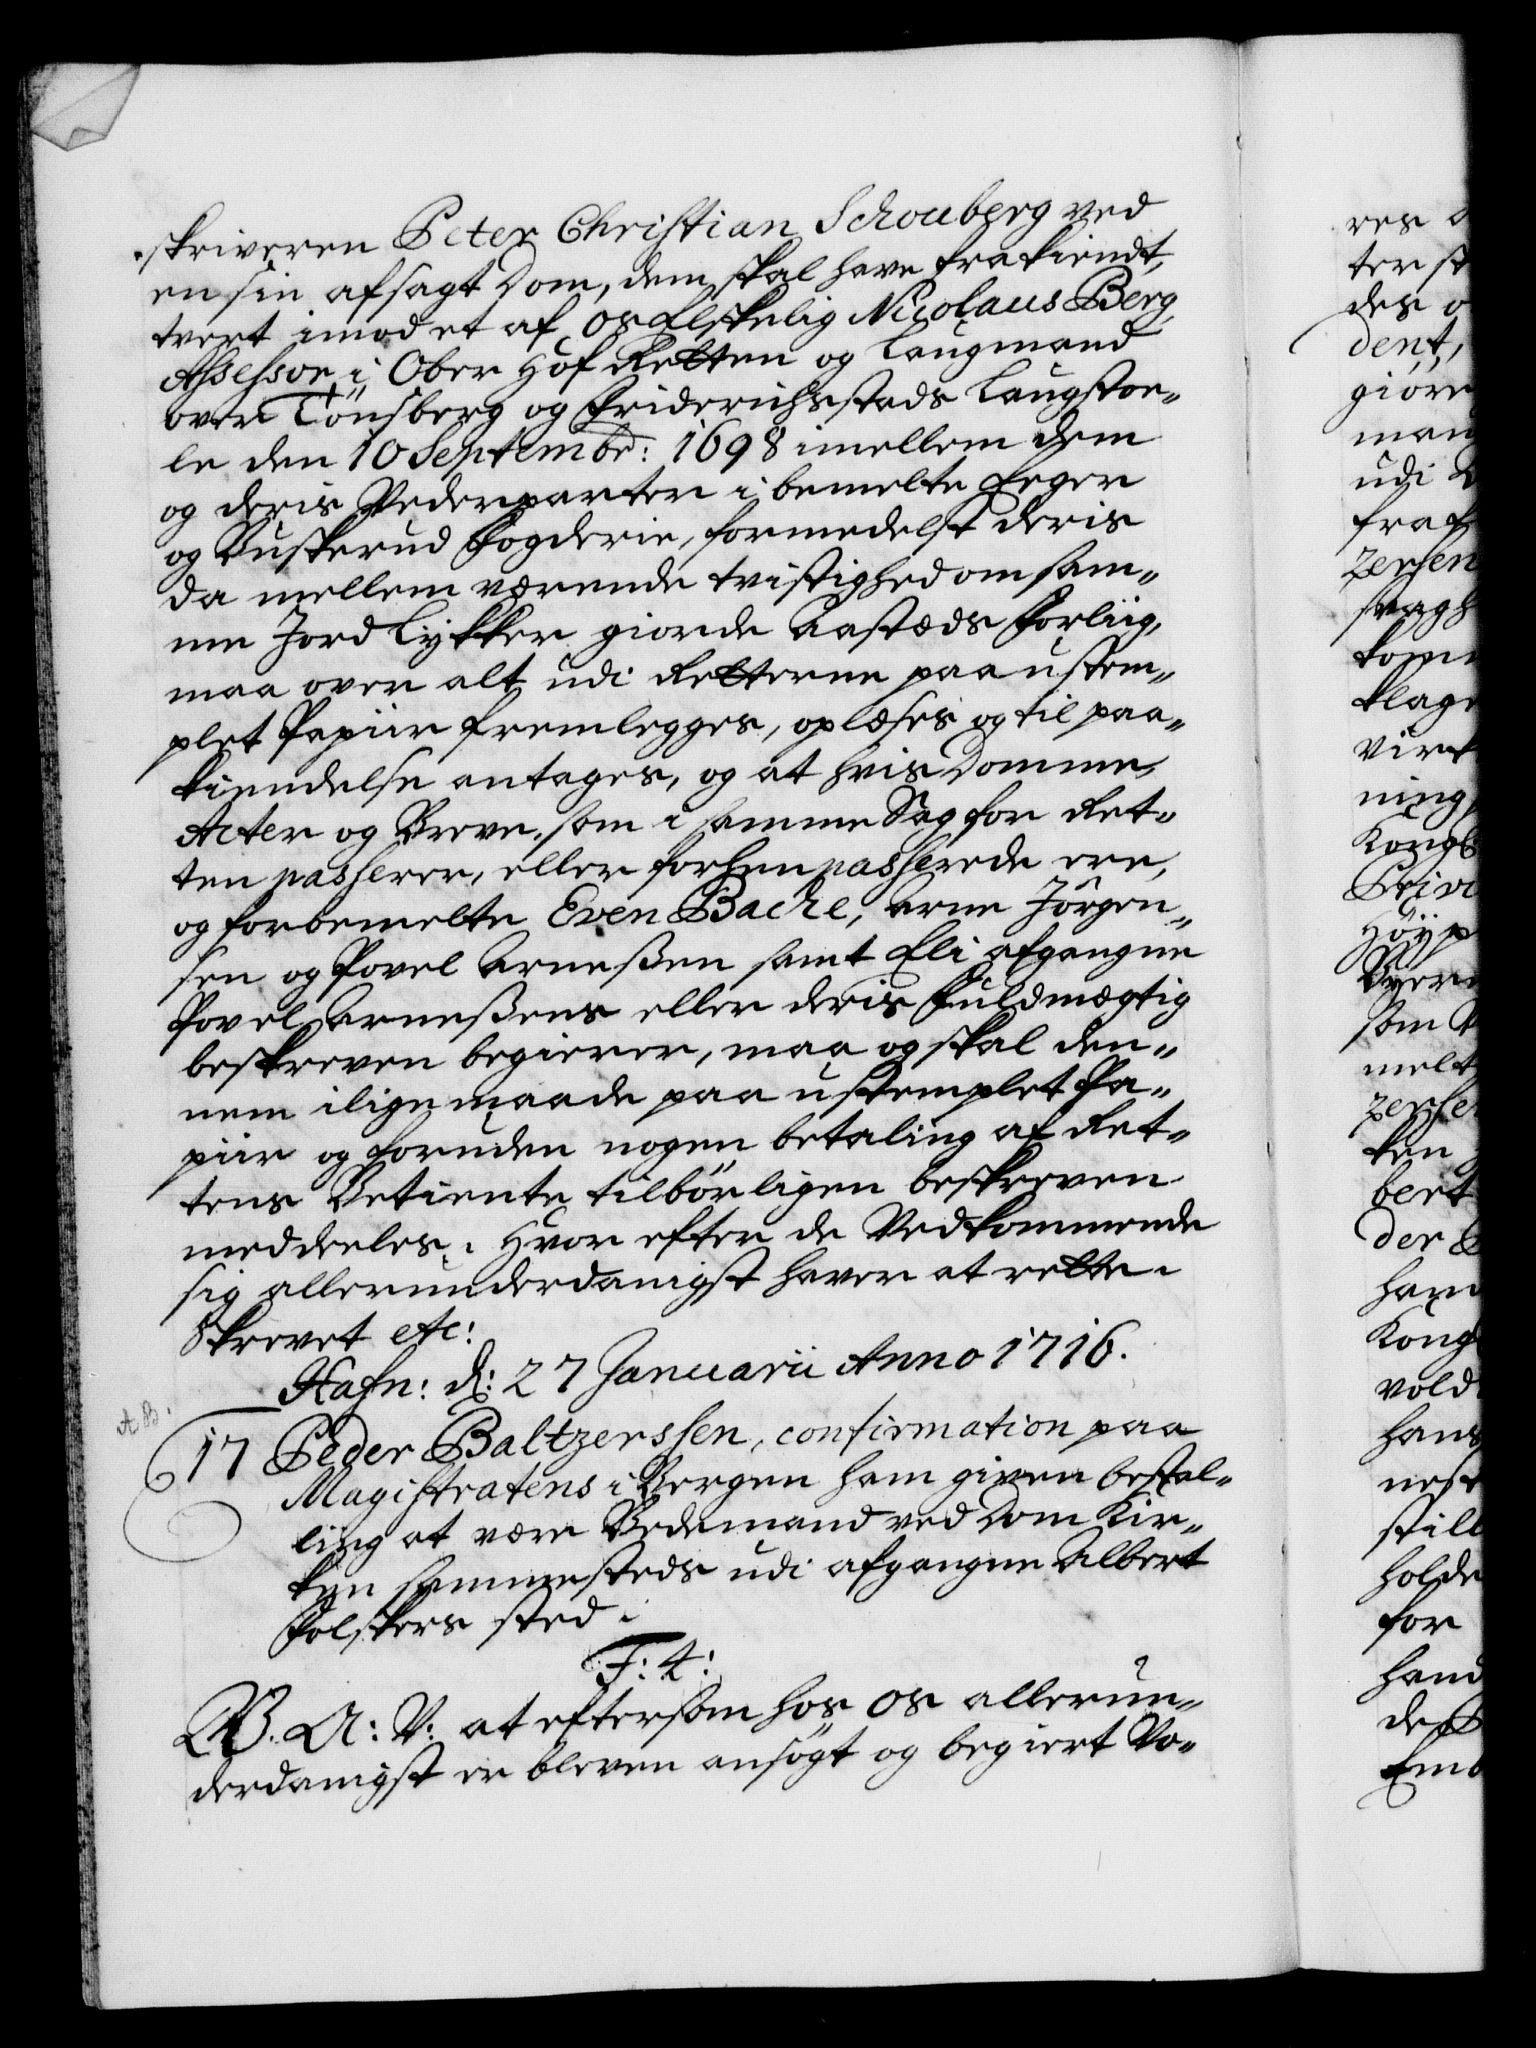 skriveren Peter Christian Schouberg ved
en sin afsagt Dom, dem skal have frakiendt,
tvert imod et af Os Elskelig Nicolaus Berg,
Assessor i Ober Hof Retten og Laugmand
over Tönsberg og Friderichsstads Laugstoe„
le den 10 Septembr: 1698 imellem dem
og deris Vederparter i bemelte Eger
og Buskerud Fogderie, formedelst deris
da mellem værende tvistighed om sam„
me Jord lykker giorde Aasteds Forliig,
maa over alt udi Retterne paa ustem„
plet Papiir fremlegges, oplæses og til paa„
kiendelse antages, og at hvis Domme,
Acter og Breve, som i samme Sag for Ret„
ten passerer, eller forhen passerede ere,
og forbemelte Even Bache, Arne Jörgen„
sen og Povel Arneßen samt Eli afgangne
Povel Arneßens eller deris Fuldmægtig
beskreven begierer, maa og skal den„
nem i lige maade paa ustemplet Pa„
piir og foruden nogen betaling af Ret„
tens Betiente tilbörligen beskreven
meddeeles. Hvor efter de Vedkommende
sig allerunderdanigst haver at rette.
Skrevet etc:
Hafn: d: 27 Januarii Anno 1716.
A B.
17 Peder Baltzerssen, confirmation paa
Magistratens i Bergen ham given bestal„
ling at være Bedemand ved Dom Kir„
ken sammesteds udi afgangne Albert
Polskers sted.
F: 4:
G. A: V: at eftersom hos Os allerun„
derdanigst er bleven ansögt og begiert Vo„
res
ter
des
dent,
giöre
man
udi
fra
zersen
svagh
kom
klage
virk
ning,
Kongs
Privi
Höy
som
melt
zerse
ken
bert
der
ham
Kong
vold
hans
nest
still
holde
for
hand
des
Emb